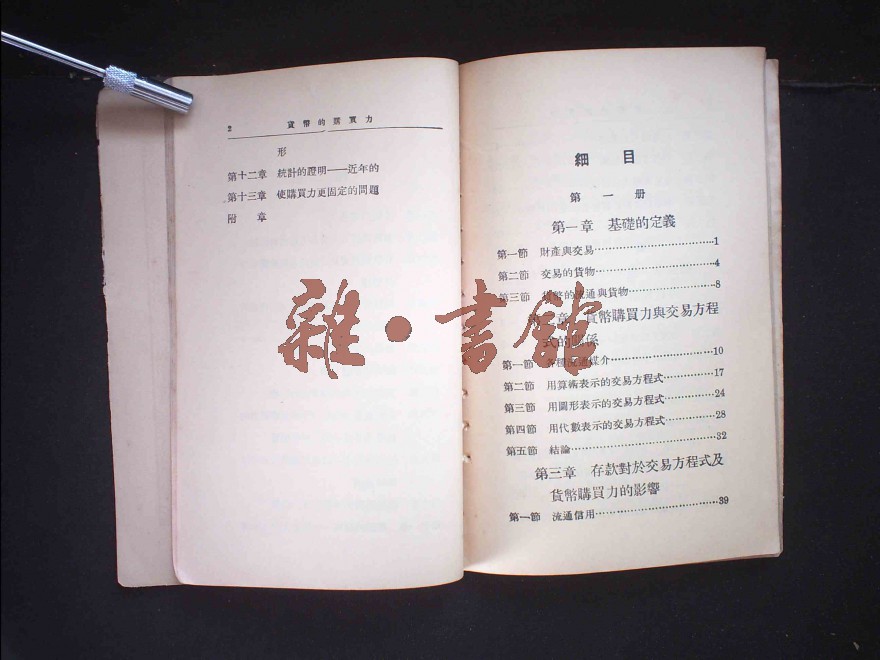 2 貨幣的購買力
形
第十二章 統計的證明——近年的
第十三章 使購買力更固定的問題
附 章
細 目
第 一 册
第一章 基礎的定義
第一節 財產與交易……1
第二節 交易的貨物……4
第三節 貨幣的流通與貨物……8
章 貨幣購買力與交易方程
式的關係
第一節 各種流通媒介……10
第二節 用算術表示的交易方程式……17
第三節 用圖形表示的交易方程式……24
第四節 用代數表示的交易方程式……28
第五節 結論……32
第三章 存款對於交易方程式及
貨幣購買力的影響
第一節 流通信用……39
雜·書館